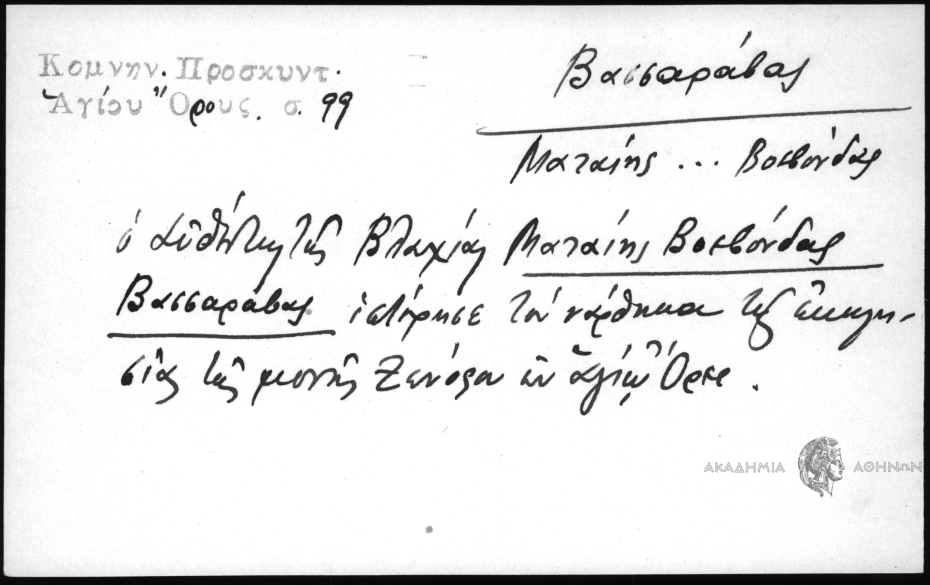 Κομνην. Προσκυντ.
Ἁγίου Ὄρους. σ. 99
Βασσαράβας
Ματαίης ... Βοεβόνδας
ὁ αὐθέντης τῆς Βλαχίας Ματαίης Βοεβόνδας
Βασσαράβας ἱστόρησε τὸν νάρθηκα τῆς ἐκκλη-
σίας τῆς μονῆς Ξενόφου ἐν ἁγίῳ Ὄρει.
ΑΚΑΔΗΜΙΑ ΑΘΗΝΩΝ